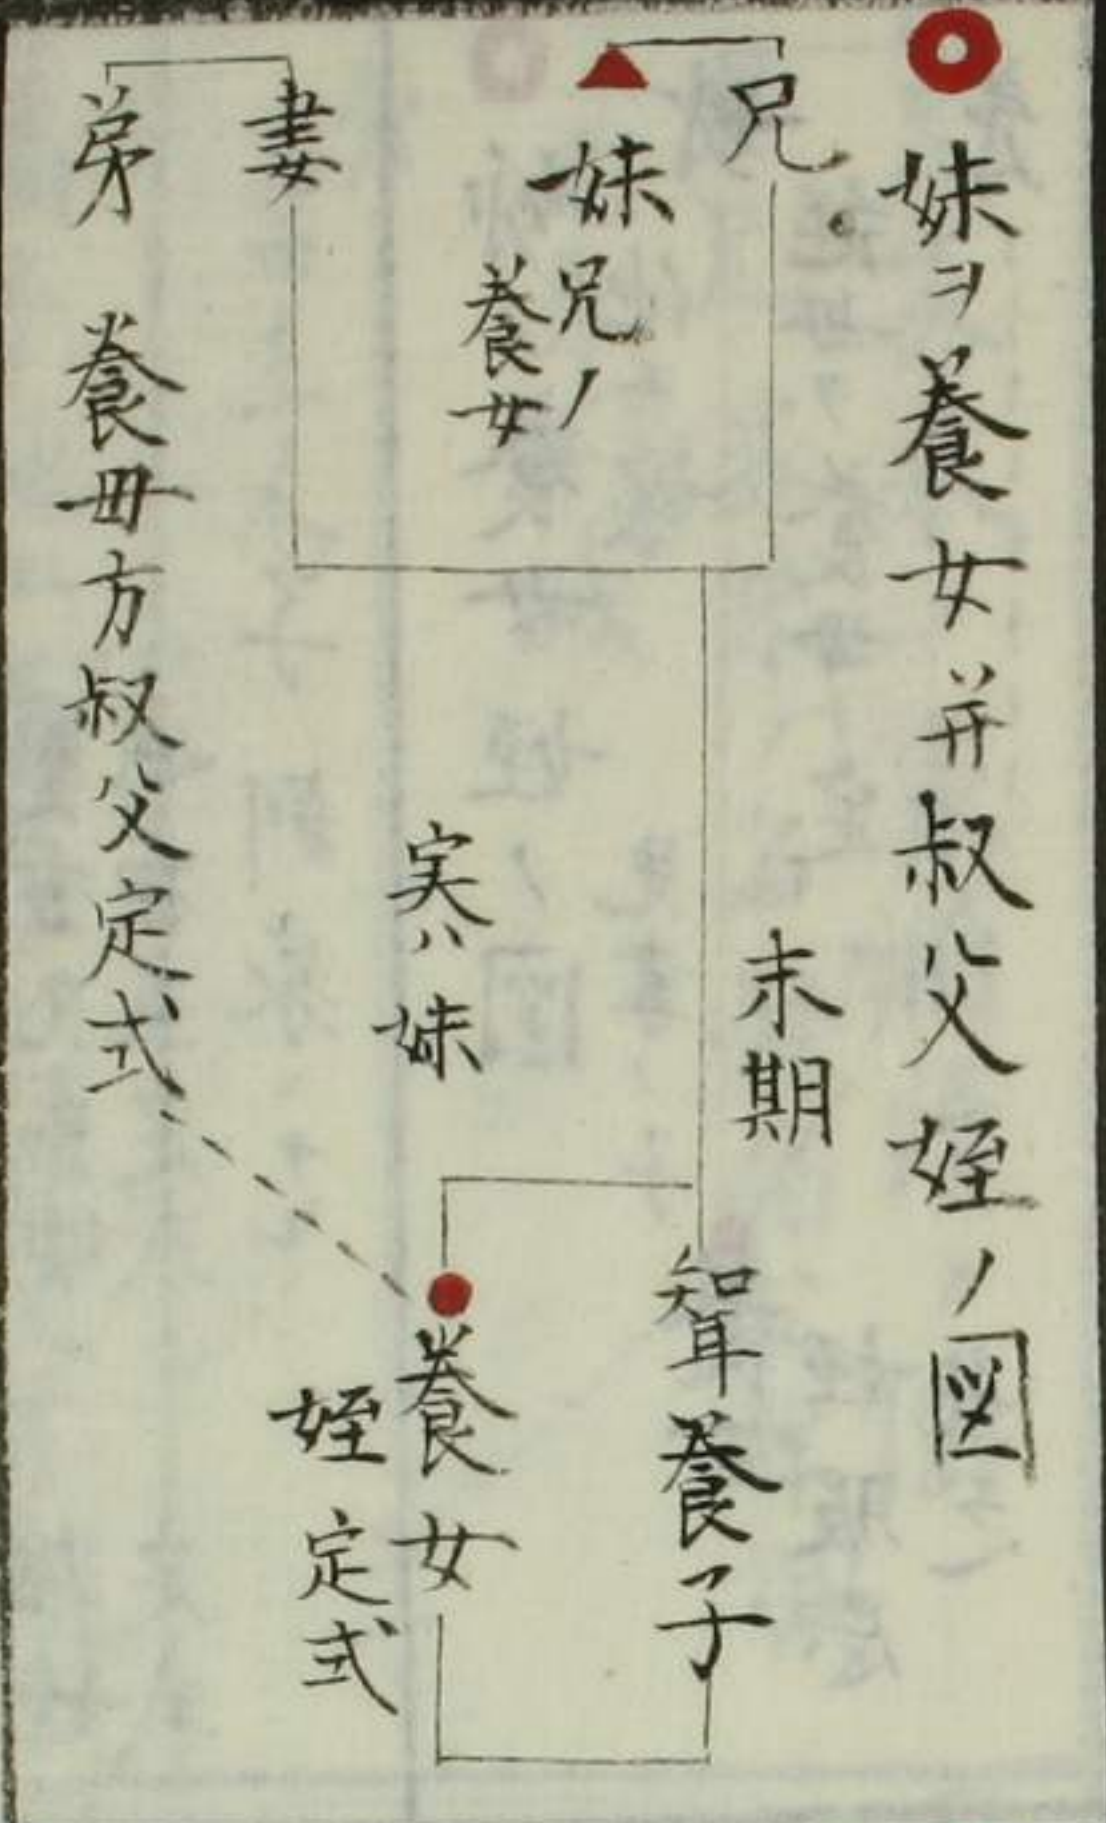 妹ヲ養女并叔父姪ノ図
兄
妹
兄ノ
養女
妻
弟
養母方叔父定式
末期
聟養子
実ハ妹
養女
姪定式